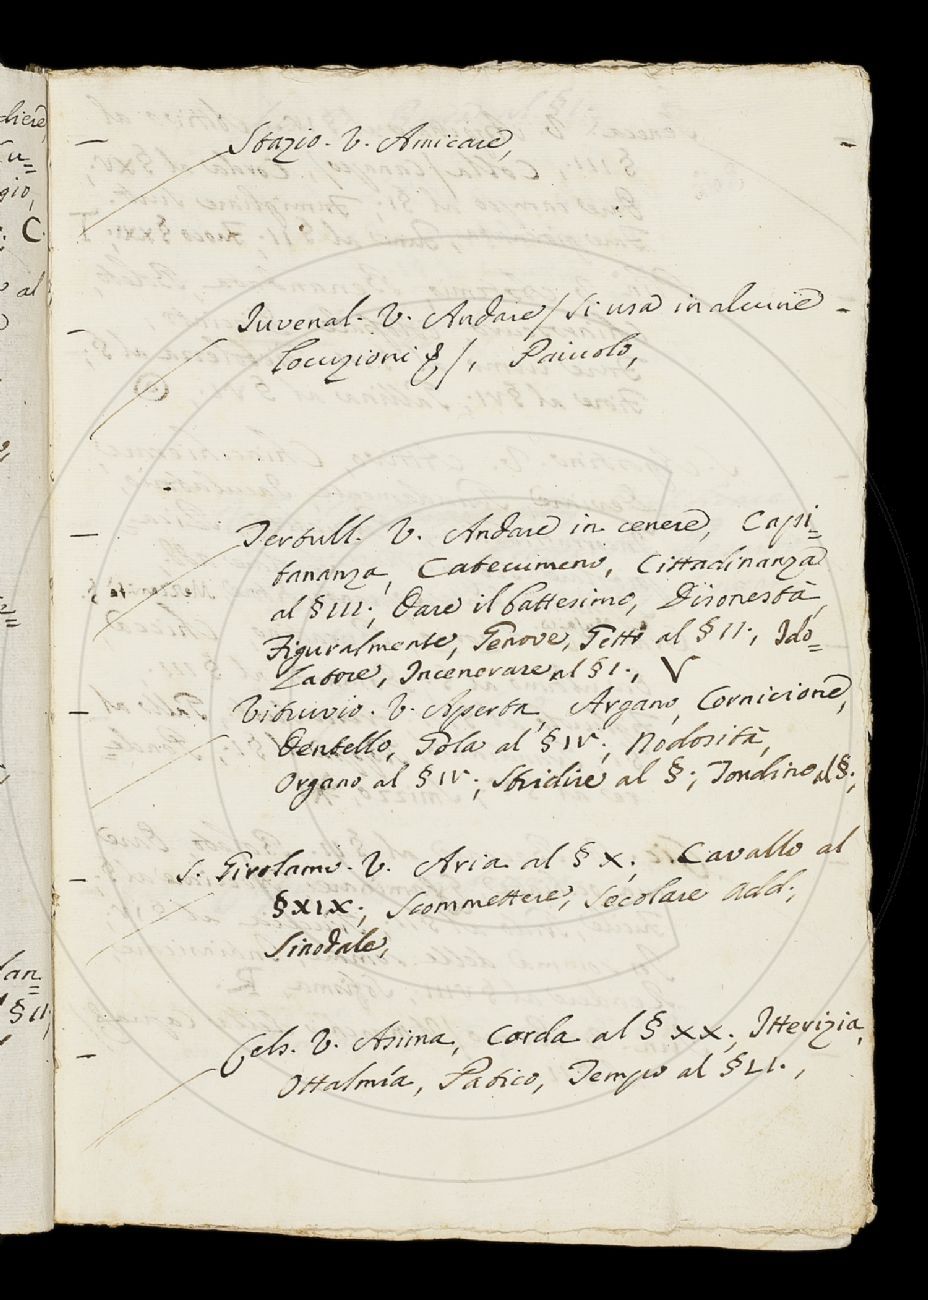 diere,
Cu=
gio,
C.
al
Stazio. V. Amicare,
Juvenal. V. Andare / Si usa in alcune
locuzioni &/, Paiuolo,
Tertull. V. Andare in cenere, Capi=
tananza, Catecumeno, Cittadinanza
al § III., Dare il battesimo, Disonestà,
Figuralmente, Genove, Getto al § II., Ido=
latore, Incenerare al § I., V
Vitruvio. V. Aperta, Argano, Cornicione,
Dentello, Gola al § IV; Nodosità,
Organo al § IV; Stridire al §; Tondino al §;
S. Girolamo. V. Aria al § X; Cavallo al
§ XIX; Scommettere, Secolare add;
Sinodale,
Cels. V. Asima, Corda al § XX; Itterizia,
Ottalmía, Patico, Tempo al § LI.,
lan=
§ II,